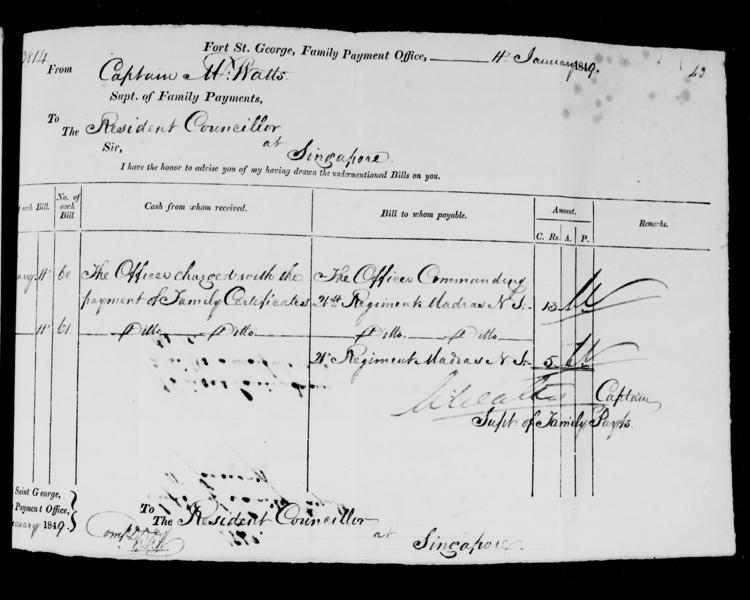 3814
Fort St. George, Family Payment Office, 4th January 1849.
43
From Captain M. Watts
Supt. of Family Payments,
To
The Resident Councillor
at
Sir,
Singapore.
I have the honor to advise you of my having drawn the undermentioned Bills on you.
each Bill. No. of each Bill. Cash from whom received. Bill to whom payable. Amount. Remarks.
C. Rs. A. P.
4th 60 The Officer charged with the The Officer Commanding
payment of Family Certificates 21st Regiment Madras N. I. 13
4th 61 Ditto Ditto Ditto Ditto
Regiment Madras N. I. 5
Captain
Supt. of Family Payts.
Saint George,
Payment Office,
1849.
To
The Resident Councillor
at
Singapore.